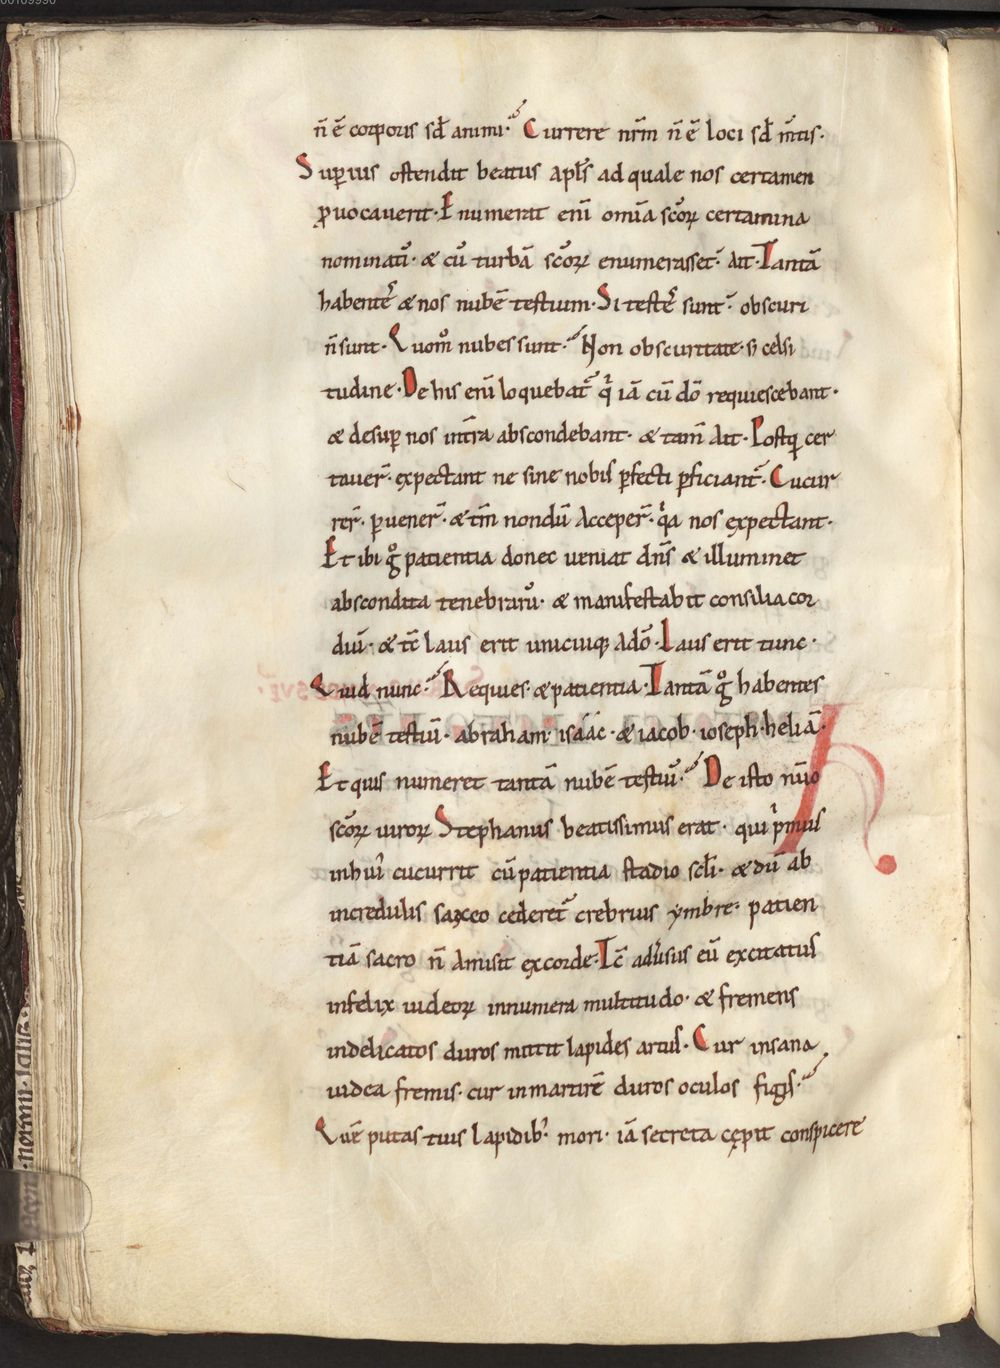 n̄ ē corporis sd̄ animi· Currere nr̄m n̄ ē loci sd̄ m̄tis·
Supius ostendit beatus apl̄s ad quale nos certamen
ꝓuocauerit· Enumerat eni̅ omīa scōꝝ certamina
nominati̅· & cu̅ turbā scōꝝ enumerasset· ait· Tantā
habentes & nos nubē testium· Si testes sunt· obscuri
n̄ sunt· Quomo nubes sunt· Non obscuritate· s; celsi
tudine· De his eni̅ loquebat̄ q̇ iā cu̅ dō requiescebant·
& desuꝑ nos intr̄a abscondebant· & tam̄ ait· Postq̄ cer
tauer̄· expectant ne sine nobis ꝑfecti ꝑficiant̄· Cucur
rer̄· ꝑuener̄· & tm̄ nondu̅ acceper̄· q̇a nos expectant·
Et ibi g̊ patientia donec ueniat dn̄s & illuminet
abscondita tenebraru̅· & manifestabit consilia cor
diu̅· & tc̄ laus erit unicuiq; a dō· Laus erit tunc·
Quid nunc· Requies· & patientia· Tantā g̊ habentes
nubē testiu̅· abraham· isáác· & iacob· ioseph· heliā·
Et quis numeret tantā nubē testiu̅· De isto nu̅o
scōꝝ uiroꝝ Stephanus beatissimus erat· qui ṗmus
in hui̅ cucurrit cu̅ patientia stadio scl̄i· & du̅ ab
incredulis saxeo cederet̄ crebrius ymbre· patien
tiā sacro n̄ amisit ex corde· Ic̄ aduersus eu̅ excitatus
infelix iudeoꝝ innumera multitudo· & fremens
in delicatos duros mittit lapides artus· Cur insana
iudea fremis· cur in martirē duros oculos figis·
Quē putas tuis lapidib; mori· iā secreta cępit conspicere